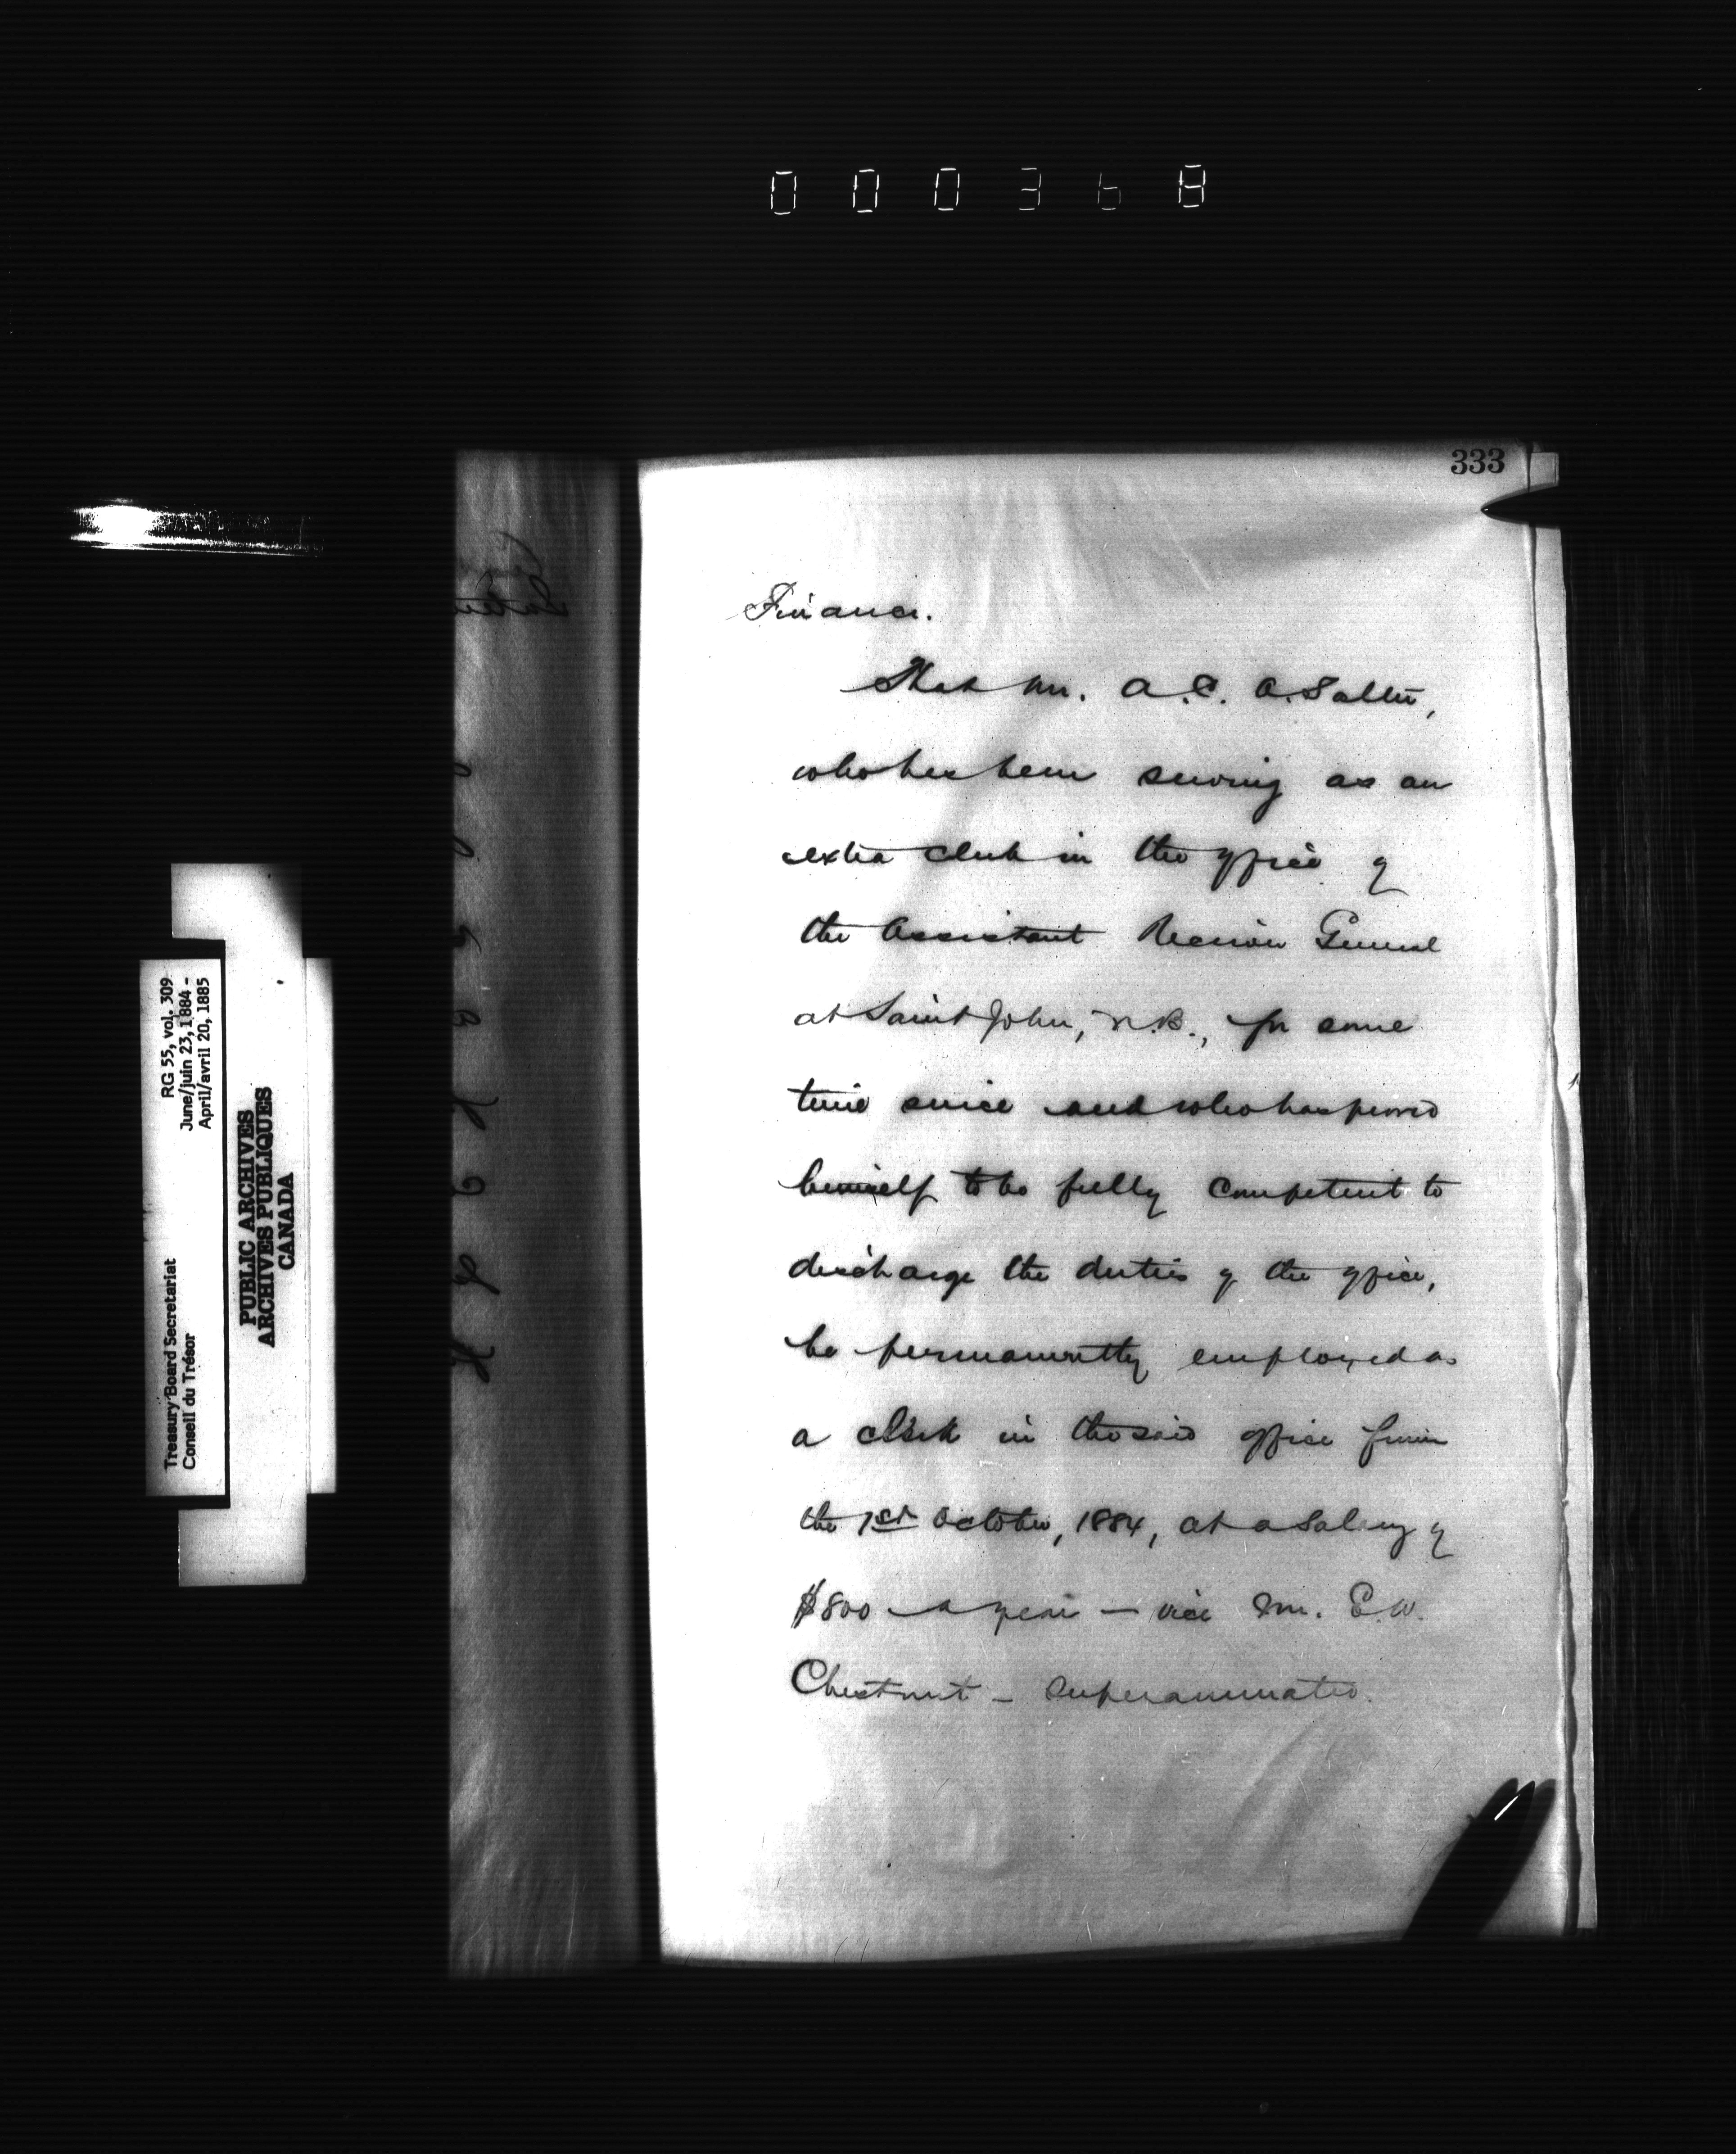 000368
333
Finance.
That Mr. A.C. A. Salter,
who has been serving as an
extra clerk in the office of
the Assistant Receiver General
at Saint John, N.B., for some
time since and who has proved
himself to be fully competent to
discharge the duties of the office,
be permanently employed as
a clerk in the said office from
the 1st October, 1884, at a salary of
$800 a year — vice Mr. E.W.
Chestnut – superannuated.
Treasury Board Secretariat
Conseil du Trésor
RG 55, vol. 309
June/juin 23, 1884 -
April/avril 20, 1885
PUBLIC ARCHIVES
ARCHIVES PUBLIQUES
CANADA